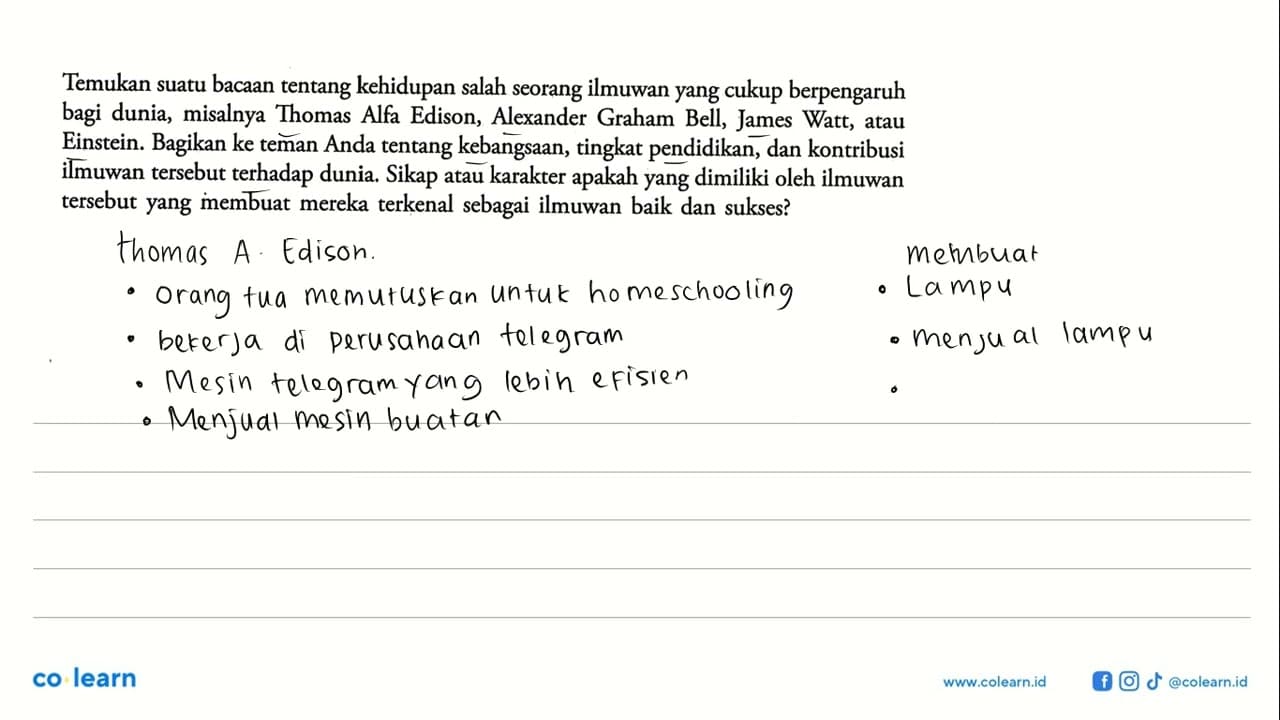 Temukan suatu bacaan tentang kehidupan salah seorang ilmuwan yang cukup berpengaruh
bagi dunia, misalnya Thomas Alfa Edison, Alexander Graham Bell, James Watt, atau
Einstein. Bagikan ke teman Anda tentang kebangsaan, tingkat pendidikan, dan kontribusi
ilmuwan tersebut terhadap dunia. Sikap atau karakter apakah yang dimiliki oleh ilmuwan
tersebut yang membuat mereka terkenal sebagai ilmuwan baik dan sukses?
thomas A. Edison.
• orang tua memutuskan untuk homeschooling
• bekerja di perusahaan telegram
• Mesin telegram yang lebih efisien
• Menjual mesin buatan
membuat
• Lampu
• menjual lampu
•
co learn
www.colearn.id
@colearn.id